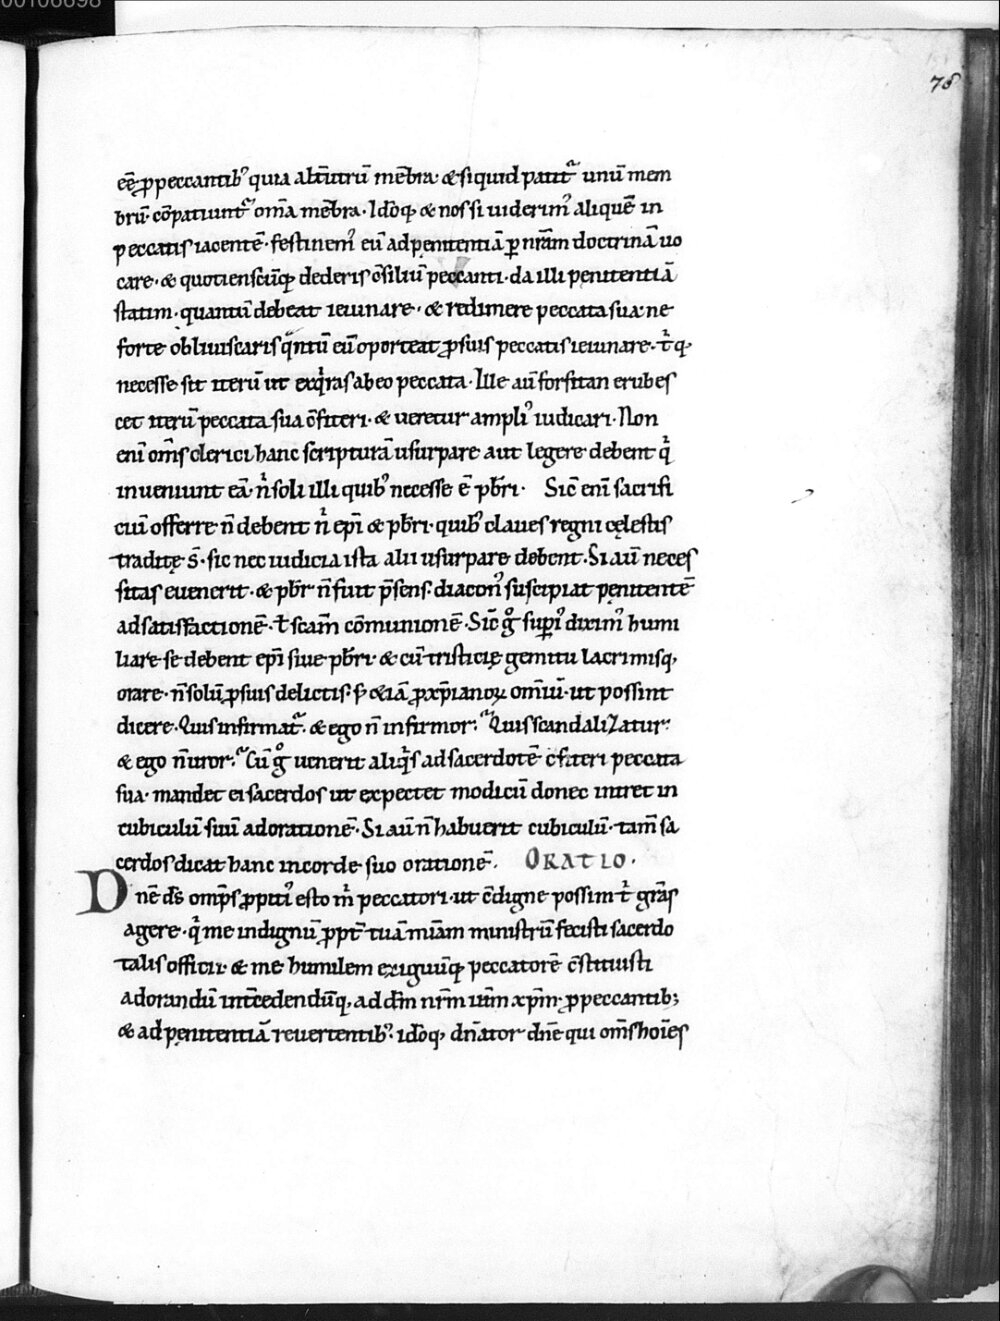 00106698
78
eē ꝓpeccantib⁹ quia alt̄utrū mēbra· & siquid patit᷑ unū mem
brū· cōpatiunt᷑ om̄a mēbra· Idōq; & nos si uiderim⁹ aliquē in
peccatis iacentē· festinem⁹ eū ad penitentiā ꝑ nr̄am doctrinā uo
care· & quotienscūq; dederis c̄siliū peccanti· da illi penitentiā
statim· quantū debeat ieiunare· & redimere peccata sua· ne
forte obliuiscaris qͣntū eū oporteat ꝓ suis peccatis ieiunare· tⁱq;
necesse sit iterū ut exqⁱras ab eo peccata· Ille aū forsitan erubes
cet iterū peccata sua c̄fiteri· & ueretur ampli⁹ iudicari· Non
eni om̄s clerici hanc scripturā usurpare aut legere debent qⁱ
inueniunt eā· nⁱ soli illi quib⁹ necesse ē· pb̄ri· Sic̄ eni sacrifi
ciū offerre n̄ debent nⁱ epi & pb̄ri· quib⁹ claues regni cęlestis
traditę s̄· sic nec iudicia ista alii usurpare debent· Si aū neces
sitas euenerit· & pb̄r n̄ fuit p̄sens· diacon⁹ suscipiat penitentē
ad satisfactionē· ł sc̄am cōmunionē· Sic̄ gͦ supi⁹ dixim⁹ humi
liare se debent epi siue pb̄ri· & cū tristicię gemitu lacrimisq;
orare· n̄ solū ꝓ suis delictis· s; & iā ꝓ xp̄ianoꝝ om̄iū· ut possint
dicere· Quis infirmat᷑· & ego n̄ infirmor· Quis scandalizatur·
& ego n̄ uror· Cū gͦ uenerit aliqⁱs ad sacerdotē c̄fiteri peccata
sua· mandet ei sacerdos ut expectet modicū donec intret in
cubiculū suū ad orationē· Si aū n̄ habuerit cubiculū· tam̄ sa
cerdos dicat hanc in corde suo orationē· ORATIO·
Dn̄e ds̄ omp̄s ꝓpiti⁹ esto mⁱ peccatori· ut c̄digne possim tⁱ grās
agere· qⁱ me indignū ꝓpt̄ tuā mīam ministrū fecisti sacerdo
talis officii· & me humilem exiguūq; peccatorē c̄stituisti
ad orandū int̄cedendūq; ad dn̄m nr̄m ihm̄ xp̄m· ꝓ peccantib;
& ad penitentiā reuertentib⁹· idōq; dn̄ator dn̄e qui om̄s hoīes